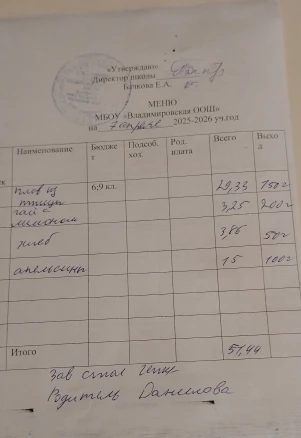 «Утверждаю»
Директор школы
Бочкова Е.А.
МЕНЮ
МБОУ «Владимировская ООШ»
на 7 апреля 2025-2026 уч.год
Наименование Бюджет Подсоб. хоз. Род. плата Всего Выход
плов из птицы 6,9 кл. 29,33 150г
чай с лимоном 3,25 200г
хлеб 3,86 50г
апельсины 15 100г
Итого 51,44
Зав
Родитель Данилова